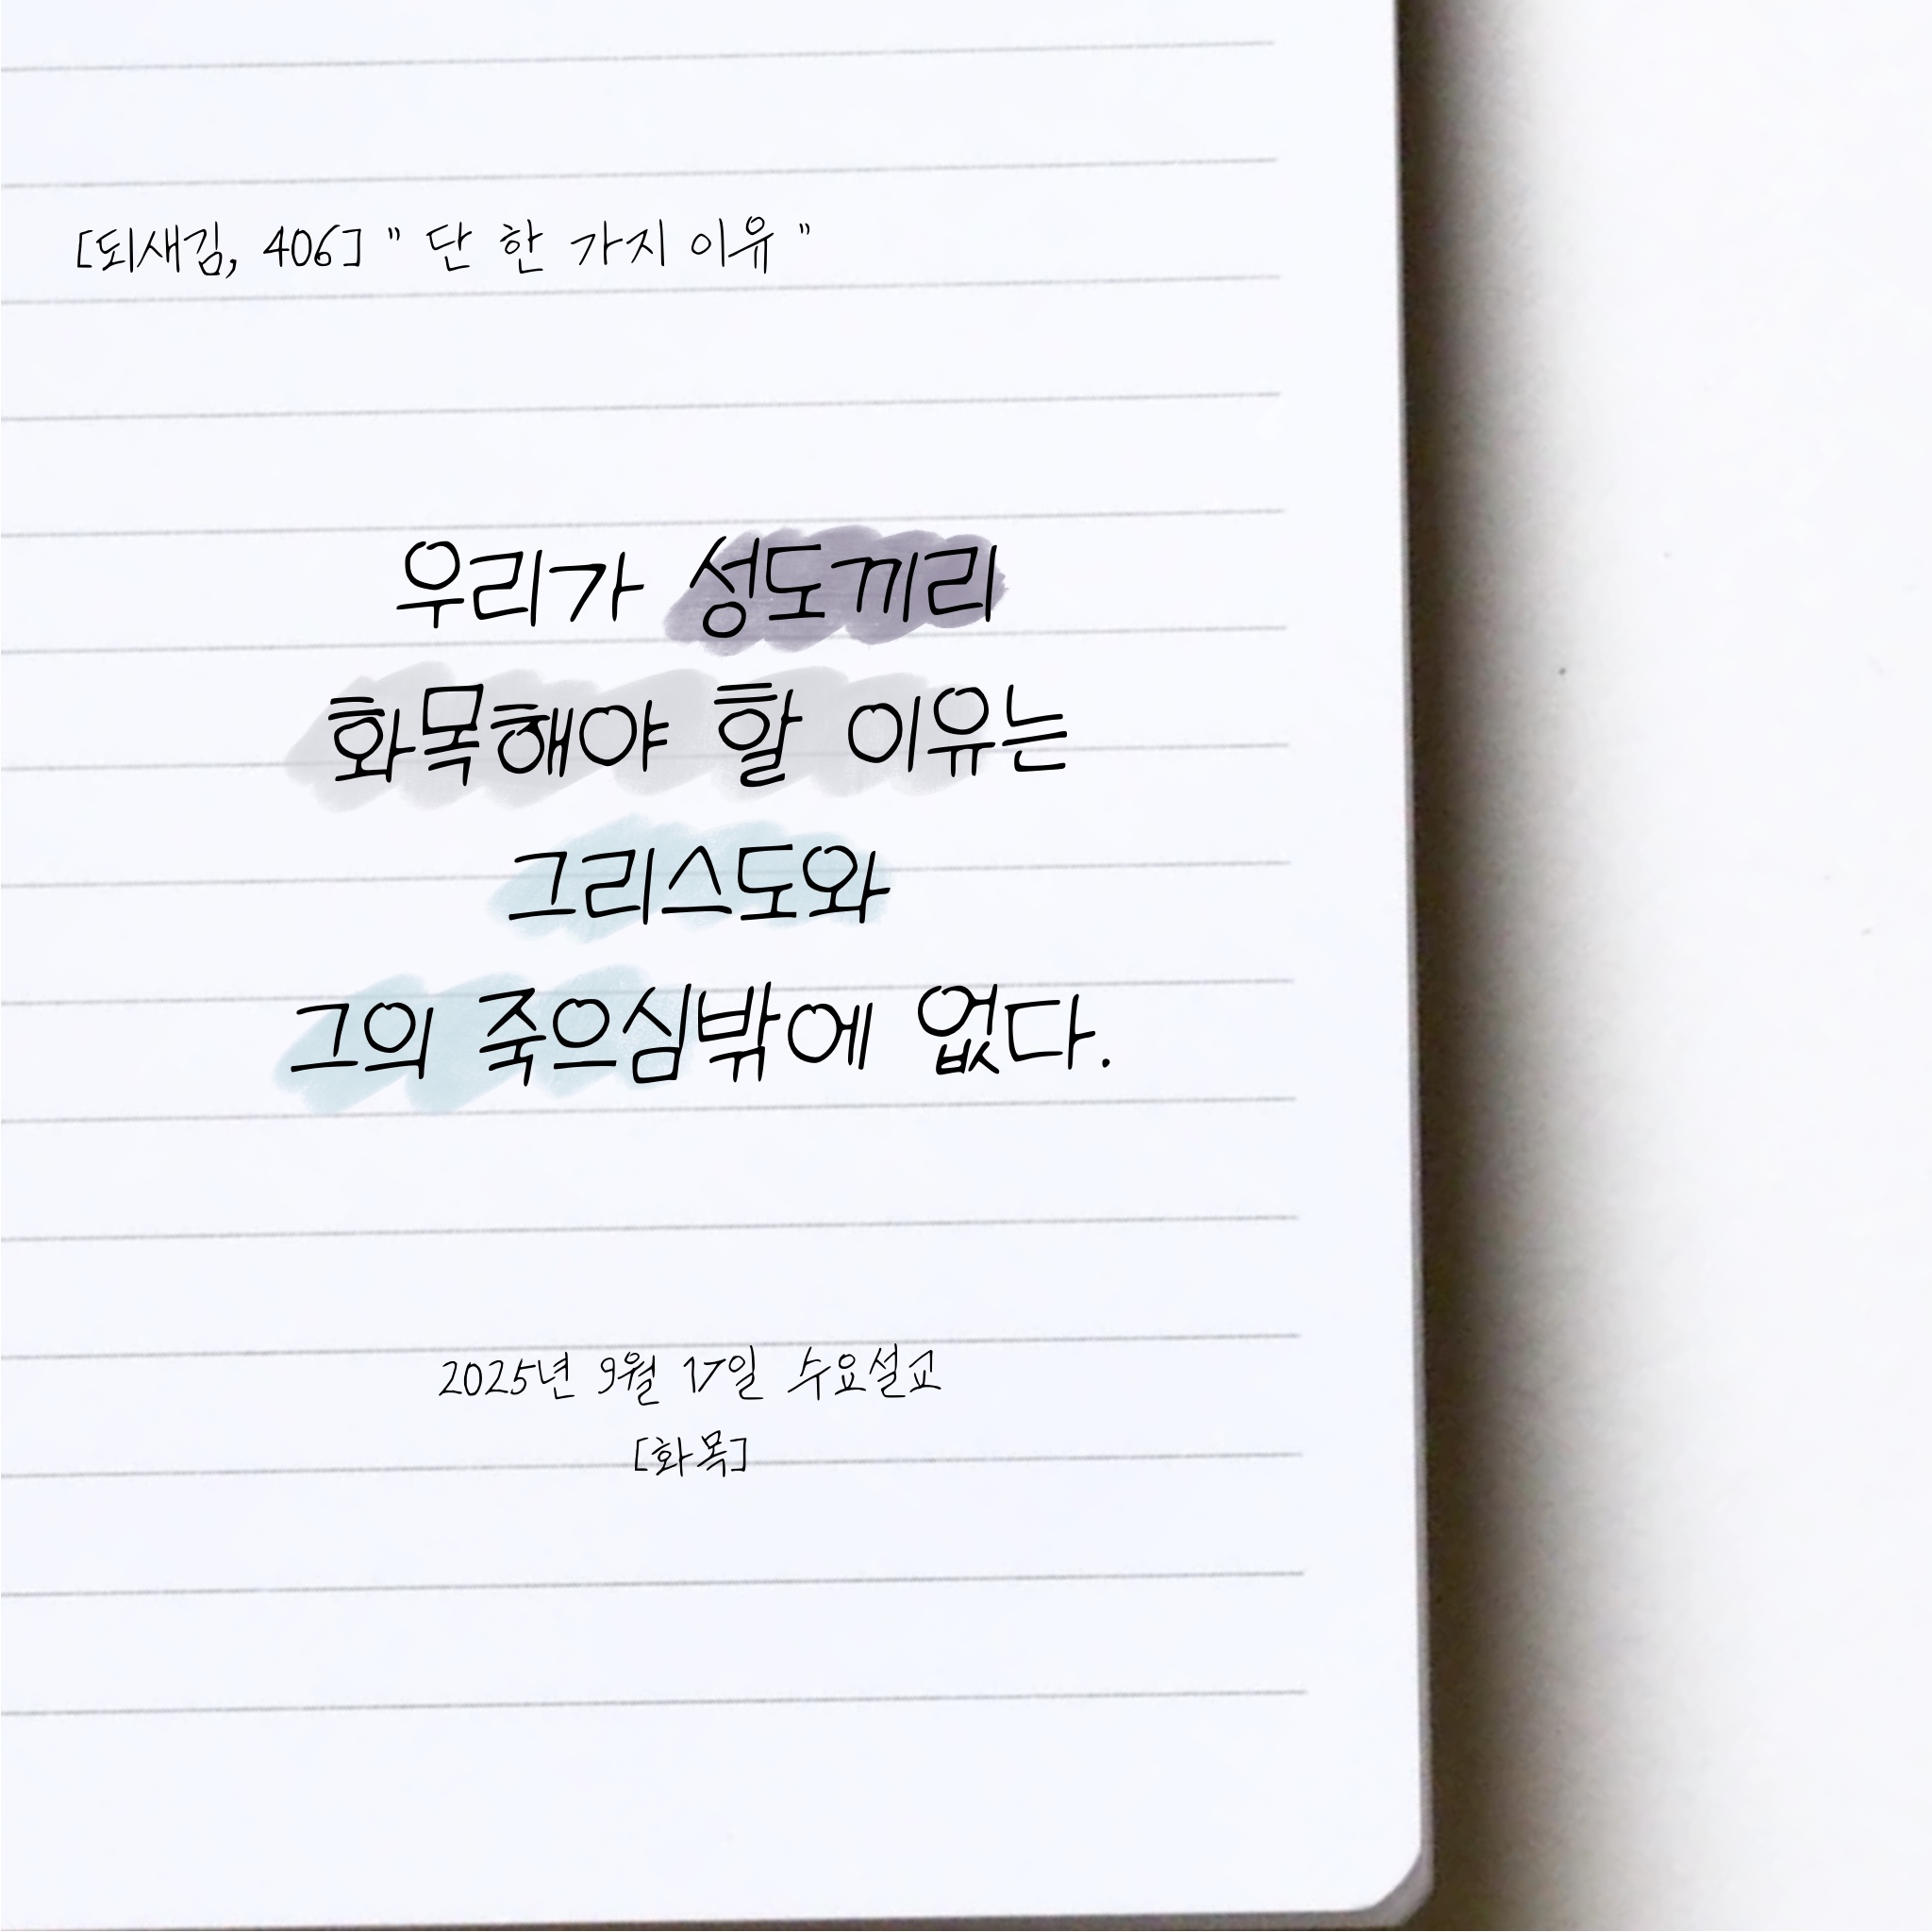 [되새김, 406] " 단 한 가지 이유 "
우리가 성도끼리
화목해야 할 이유는
그리스도와
그의 죽으심밖에 없다.
2025년 9월 17일 수요설교
[화목]